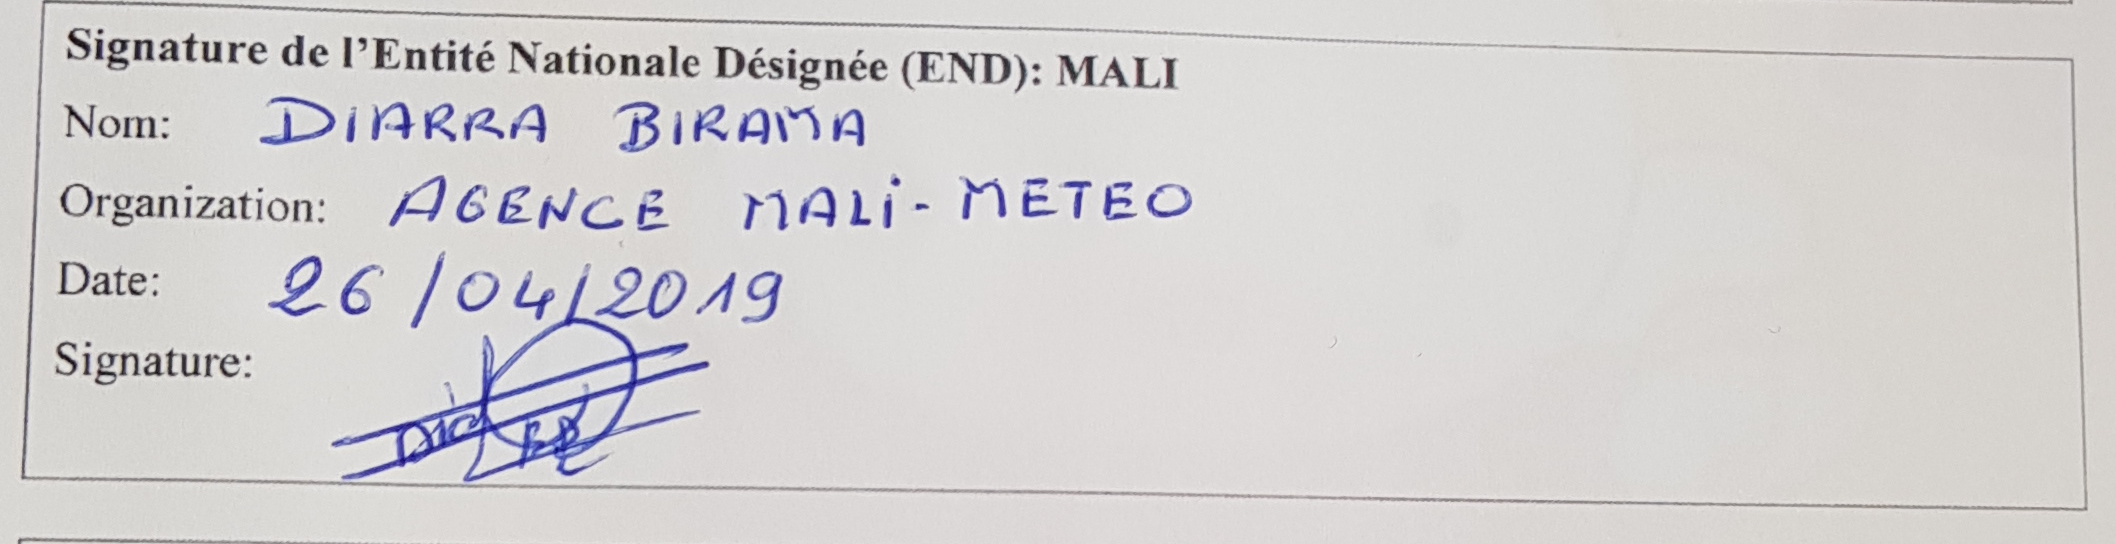 Signature de l'Entité Nationale Désignée (END): MALI
Nom: DIARRA BIRAMA
Organization: AGENCE MALi-METEO
Date: 26/04/2019
Signature: